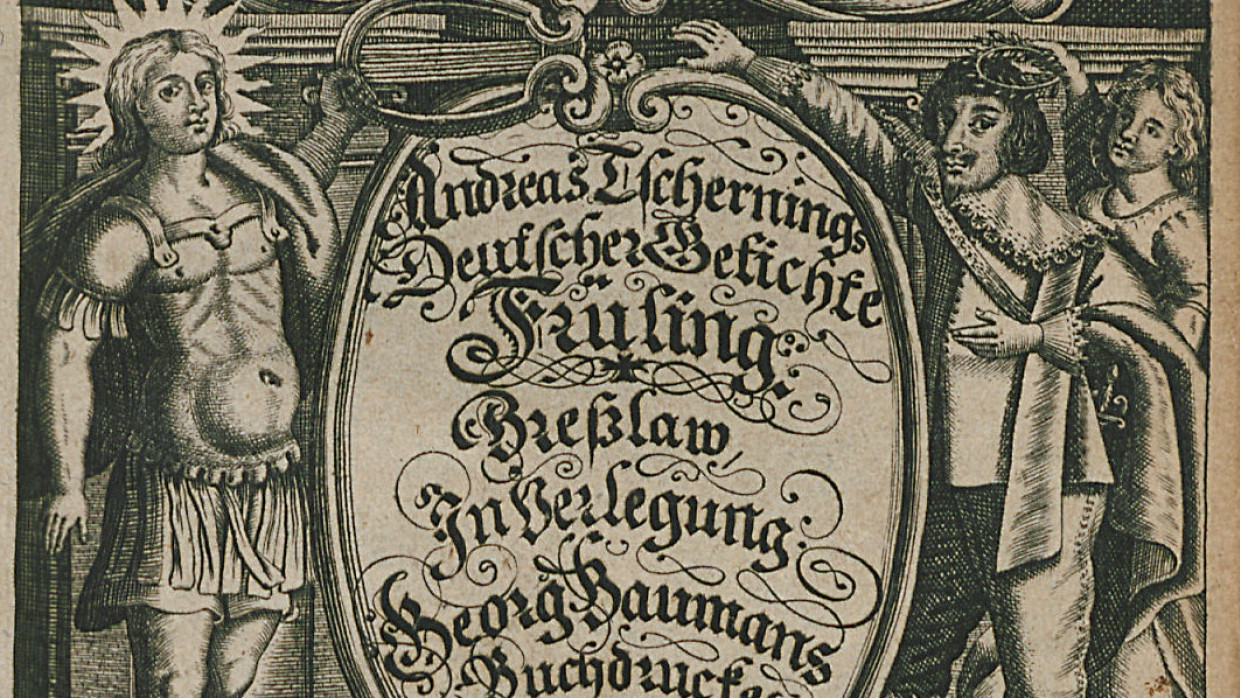 Andreas Tschernings
Deutscher Getichte
Früling.
Breßlaw,
In Verlegung.
Georg Baumans